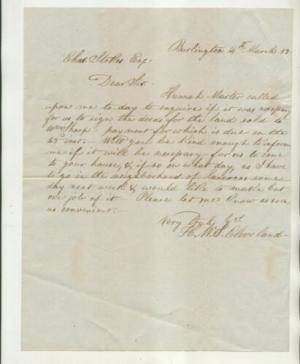 Burlington 4th March 53
Chas Stokes Esq.
Dear Sir
Hannah Master called
upon me to day to enquire if it was necessary
for us to sign the deeds for the land sold to
payment for which is due on the
25 inst. Will you be kind enough to inform
me if it will be necessary for us to come
to your house, & if so on what day, as I have
to go in the neighborhood of some
day next week & would like to make but
one job of it. Please let me know as soon
as convenient.
Very Truly Yrs
H. W. S. Cleveland